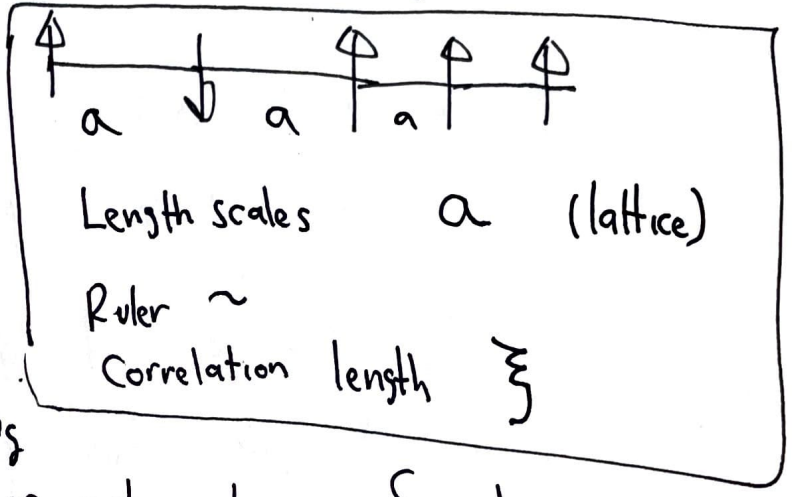 a a a
Length scales a (lattice)
Ruler ~
Correlation length ξ